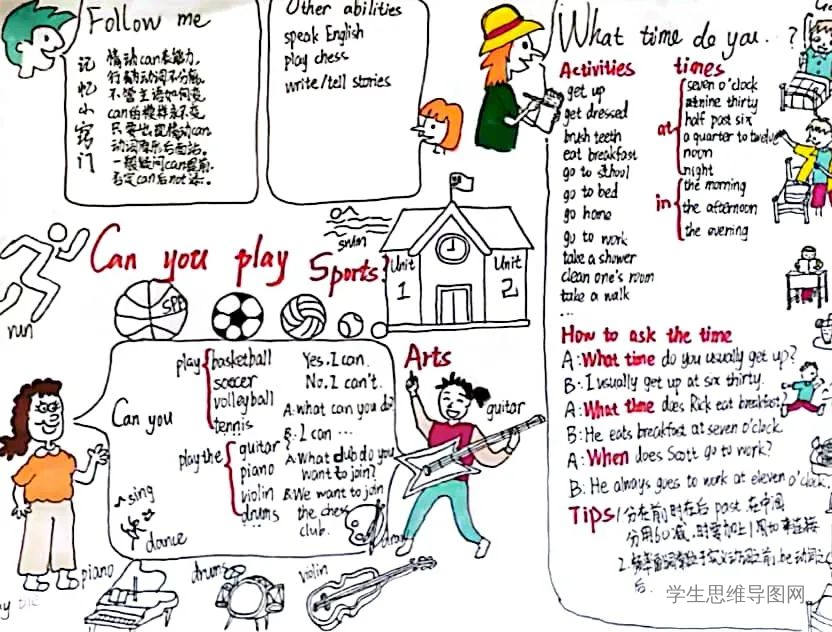 Follow me
记忆小窍门
情动can表能力,
行为动词不分家。
不管主语如何变,
can的模样永不变。
只要出现情动can,
动词原形后面站。
一般疑问can提前,
否定can后not添。
Other abilities
speak English
play chess
write/tell stories
What time do you...?
Activities
get up
get dressed
brush teeth
eat breakfast
go to school
go to bed
go home
go to work
take a shower
clean one's room
take a walk
...
times
at
seven o'clock
nine thirty
half past six
a quarter to twelve
noon
night
in
the morning
the afternoon
the evening
run
Can you play Sports?
swim
Unit 1
Unit 2
SPA
Can you
play
basketball
soccer
volleyball
tennis
...
play the
guitar
piano
violin
drums
...
Yes. I can.
No. I can't.
A: what can you do?
B: I can ...
A: What club do you
want to join?
B: We want to join
the chess
club.
?
sing
dance
draw
Arts
guitar
piano
drums
violin
How to ask the time
A: What time do you usually get up?
B: I usually get up at six thirty.
A: What time does Rick eat breakfast
B: He eats breakfast at seven o'clock
A: When does Scott go to work?
B: He always goes to work at eleven o'clock.
Tips
1分在前,时在后 past 在中间
分用60减,时要加上1用to来连接
2.
后.
学生思维导图网